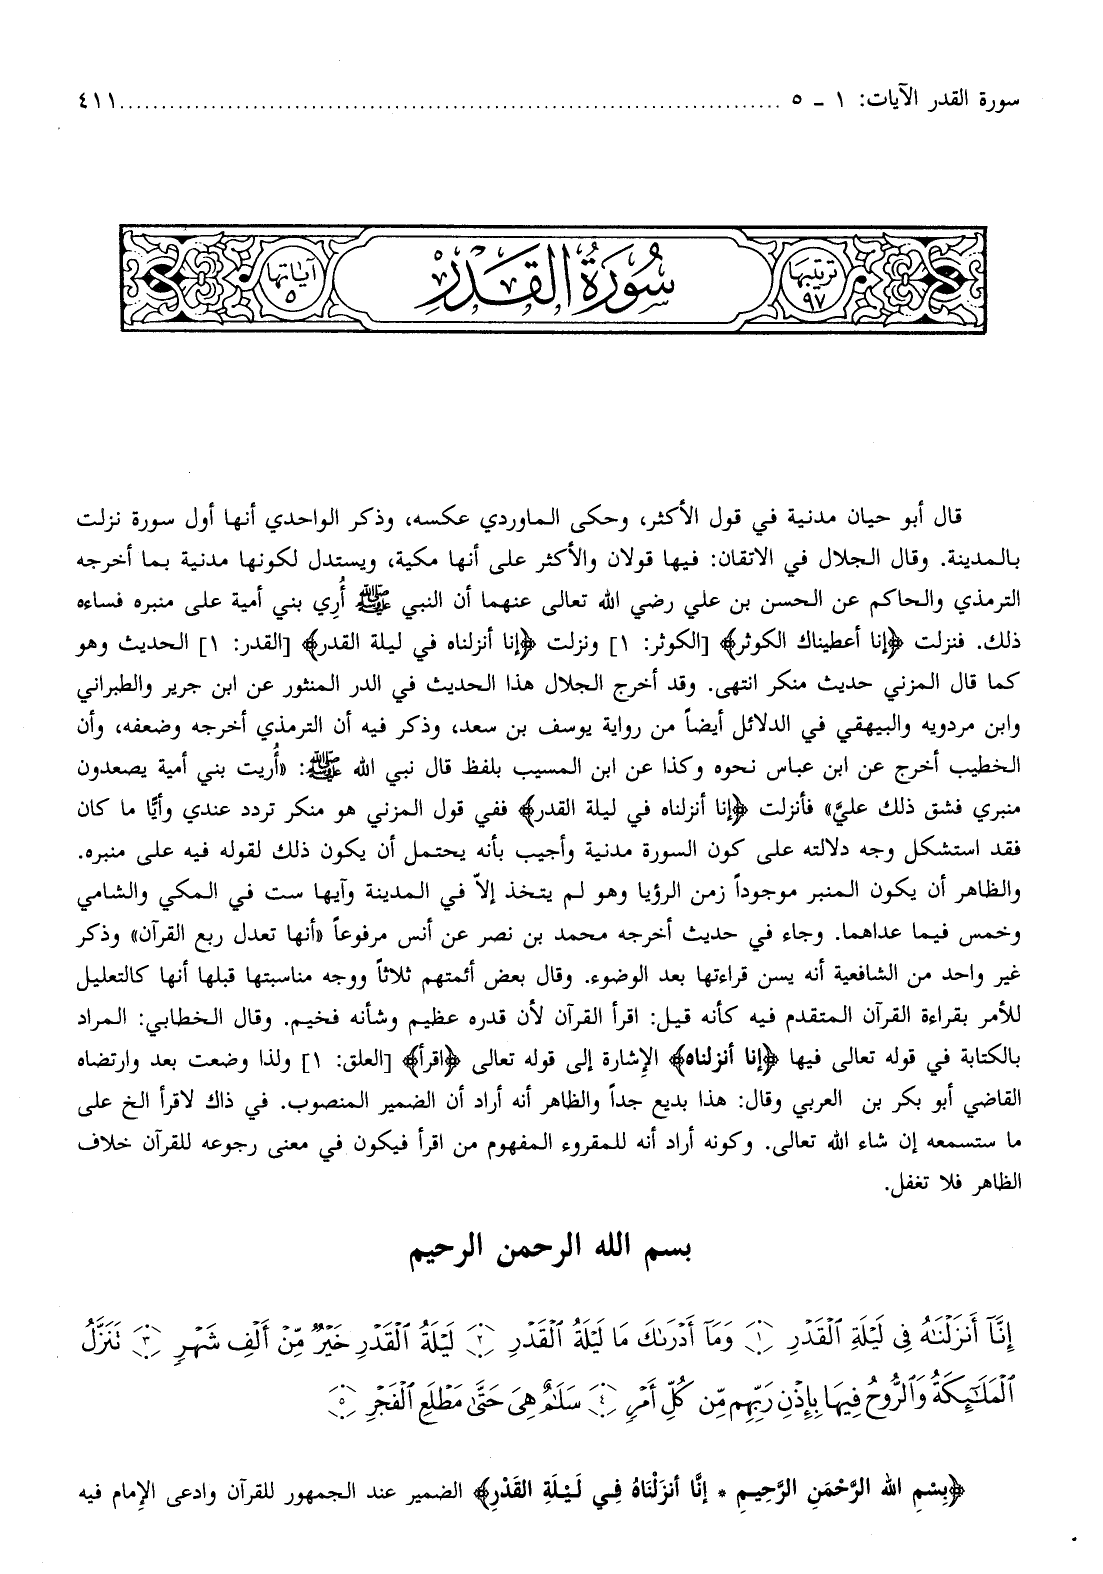 سورة القدر الآيات: ١ ـ ٥ ............................................................ ٤١١
ترتيبها ٩٧
سُورَةُ القَدْرِ
آياتها ٥
قال أبو حيان مدنية في قول الأكثر، وحكى الماوردي عكسه، وذكر الواحدي أنها أول سورة نزلت
بالمدينة. وقال الجلال في الاتقان: فيها قولان والأكثر على أنها مكية، ويستدل لكونها مدنية بما أخرجه
الترمذي والحاكم عن الحسن بن علي رضي الله تعالى عنهما أن النبي ﷺ أُرِي بني أمية على منبره فساءه
ذلك. فنزلت ﴿إنا أعطيناك الكوثر﴾ [الكوثر: ١] ونزلت ﴿إنا أنزلناه في ليلة القدر﴾ [القدر: ١] الحديث وهو
كما قال المزني حديث منكر انتهى. وقد أخرج الجلال هذا الحديث في الدر المنثور عن ابن جرير والطبراني
وابن مردويه والبيهقي في الدلائل أيضاً من رواية يوسف بن سعد، وذكر فيه أن الترمذي أخرجه وضعفه، وأن
الخطيب أخرج عن ابن عباس نحوه وكذا عن ابن المسيب بلفظ قال نبي الله ﷺ: «أُريت بني أمية يصعدون
منبري فشق ذلك عليَّ» فأنزلت ﴿إنا أنزلناه في ليلة القدر﴾ ففي قول المزني هو منكر تردد عندي وأيًّا ما كان
فقد استشكل وجه دلالته على كون السورة مدنية وأجيب بأنه يحتمل أن يكون ذلك لقوله فيه على منبره.
والظاهر أن يكون المنبر موجوداً زمن الرؤيا وهو لم يتخذ إلاّ في المدينة وآيها ست في المكي والشامي
وخمس فيما عداهما. وجاء في حديث أخرجه محمد بن نصر عن أنس مرفوعاً «أنها تعدل ربع القرآن» وذكر
غير واحد من الشافعية أنه يسن قراءتها بعد الوضوء. وقال بعض أئمتهم ثلاثاً ووجه مناسبتها قبلها أنها كالتعليل
للأمر بقراءة القرآن المتقدم فيه كأنه قيل: اقرأ القرآن لأن قدره عظيم وشأنه فخيم. وقال الخطابي: المراد
بالكتابة في قوله تعالى فيها ﴿إنا أنزلناه﴾ الإشارة إلى قوله تعالى ﴿اقرأ﴾ [العلق: ١] ولذا وضعت بعد وارتضاه
القاضي أبو بكر بن العربي وقال: هذا بديع جداً والظاهر أنه أراد أن الضمير المنصوب. في ذاك لاقرأ الخ على
ما ستسمعه إن شاء الله تعالى. وكونه أراد أنه للمقروء المفهوم من اقرأ فيكون في معنى رجوعه للقرآن خلاف
الظاهر فلا تغفل.
بسم الله الرحمن الرحيم
إِنَّآ أَنزَلْنَٰهُ فِى لَيْلَةِ ٱلْقَدْرِ ١ وَمَآ أَدْرَىٰكَ مَا لَيْلَةُ ٱلْقَدْرِ ٢ لَيْلَةُ ٱلْقَدْرِ خَيْرٌ مِّنْ أَلْفِ شَهْرٍ ٣ تَنَزَّلُ
ٱلْمَلَٰٓئِكَةُ وَٱلرُّوحُ فِيهَا بِإِذْنِ رَبِّهِم مِّن كُلِّ أَمْرٍ ٤ سَلَٰمٌ هِىَ حَتَّىٰ مَطْلَعِ ٱلْفَجْرِ ٥
﴿بِسْمِ الله الرَّحْمَنِ الرَّحِيمِ * إِنَّا أنزَلْنَاهُ فِي لَيْلَةِ القَدْرِ﴾ الضمير عند الجمهور للقرآن وادعى الإمام فيه